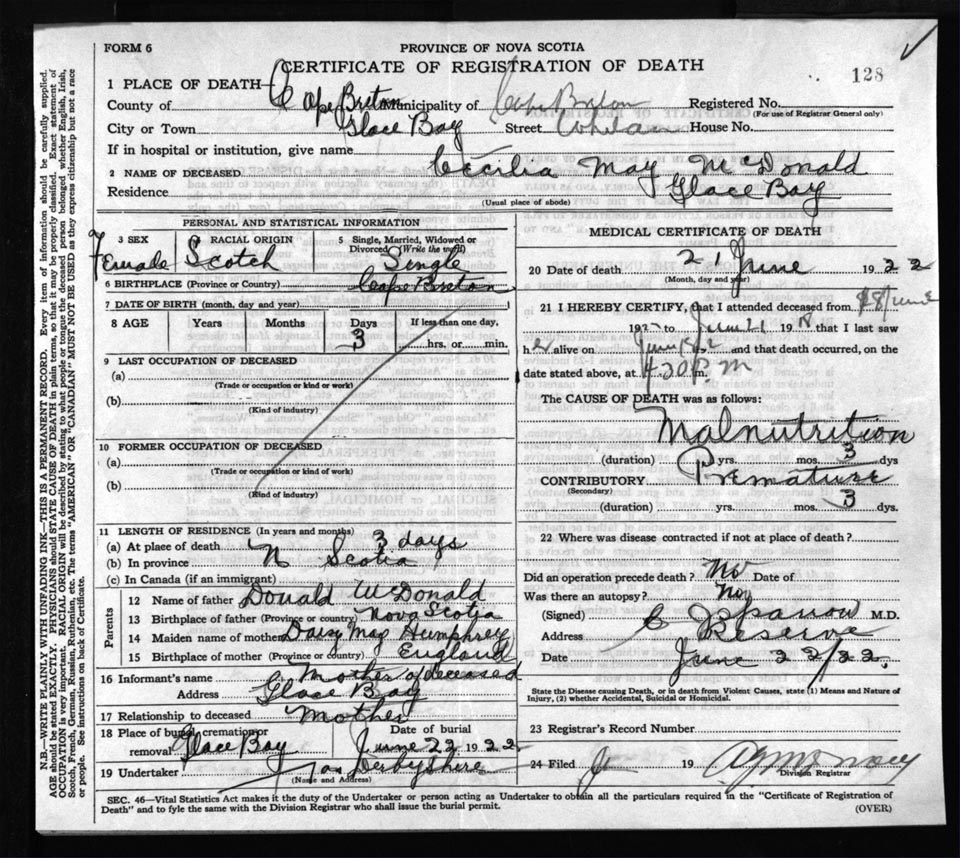 FORM 6
PROVINCE OF NOVA SCOTIA
CERTIFICATE OF REGISTRATION OF DEATH
128
1 PLACE OF DEATH—
County of Cape Breton Municipality of Cape Breton Registered No.
(For use of Registrar General only)
City or Town Glace Bay Street House No.
If in hospital or institution, give name
2 NAME OF DECEASED Cecilia May McDonald
Residence Glace Bay
(Usual place of abode)
PERSONAL AND STATISTICAL INFORMATION
3 SEX RACIAL ORIGIN 5 Single, Married, Widowed or
Divorced (Write the word)
Female Scotch Single
6 BIRTHPLACE (Province or Country) Cape Breton
7 DATE OF BIRTH (month, day and year)
8 AGE Years Months Days If less than one day,
3 hrs. or min.
9 LAST OCCUPATION OF DECEASED
(a)
(Trade or occupation or kind of work)
(b)
(Kind of industry)
10 FORMER OCCUPATION OF DECEASED
(a)
(Trade or occupation or kind of work)
(b)
(Kind of industry)
11 LENGTH OF RESIDENCE (In years and months)
(a) At place of death 3 days
(b) In province N Scotia
(c) In Canada (if an immigrant)
Parents
12 Name of father Donald McDonald
13 Birthplace of father (Province or country) Nova Scotia
14 Maiden name of mother Daisy May Humphrey
15 Birthplace of mother (Province or country) England
16 Informant's name Mother of deceased
Address Glace Bay
17 Relationship to deceased Mother
18 Place of burial, cremation or Date of burial
removal Glace Bay June 22 1922
19 Undertaker Jas Derbyshire
(Name and Address)
MEDICAL CERTIFICATE OF DEATH
20 Date of death 21 June 1922
(Month, day and year)
21 I HEREBY CERTIFY, that I attended deceased from 18/June
192 to June 21 19 that I last saw
her alive on June and that death occurred, on the
date stated above, at 4.30 P.m m.
The CAUSE OF DEATH was as follows:
Malnutrition
(duration) yrs. mos. 3 dys
CONTRIBUTORY Premature
(Secondary)
(duration) yrs. mos. 3 dys.
22 Where was disease contracted if not at place of death?
Did an operation precede death? No Date of
Was there an autopsy? No
(Signed) M.D.
Address Reserve
Date June 22/22.
State the Disease causing Death, or in death from Violent Causes, state (1) Means and Nature of
Injury, (2) whether Accidental, Suicidal or Homicidal.
23 Registrar's Record Number
24 Filed 19
Division Registrar
SEC. 46—Vital Statistics Act makes it the duty of the Undertaker or person acting as Undertaker to obtain all the particulars required in the "Certificate of Registration of
Death" and to fyle the same with the Division Registrar who shall issue the burial permit.
(OVER)
N.B.—WRITE PLAINLY WITH UNFADING INK—THIS IS A PERMANENT RECORD. Every item of information should be carefully supplied.
AGE should be stated EXACTLY. PHYSICIANS should STATE CAUSE OF DEATH in plain terms, so that it may be properly classified. Exact statement of
OCCUPATION is very important. RACIAL ORIGIN will be described by stating to what people or tongue the deceased person belonged whether English, Irish,
Scotch, French, German, Russian, Ruthenian, etc. The terms "AMERICAN" OR "CANADIAN" MUST NOT BE USED as they express citizenship but not a race
or people. See instructions on back of Certificate.